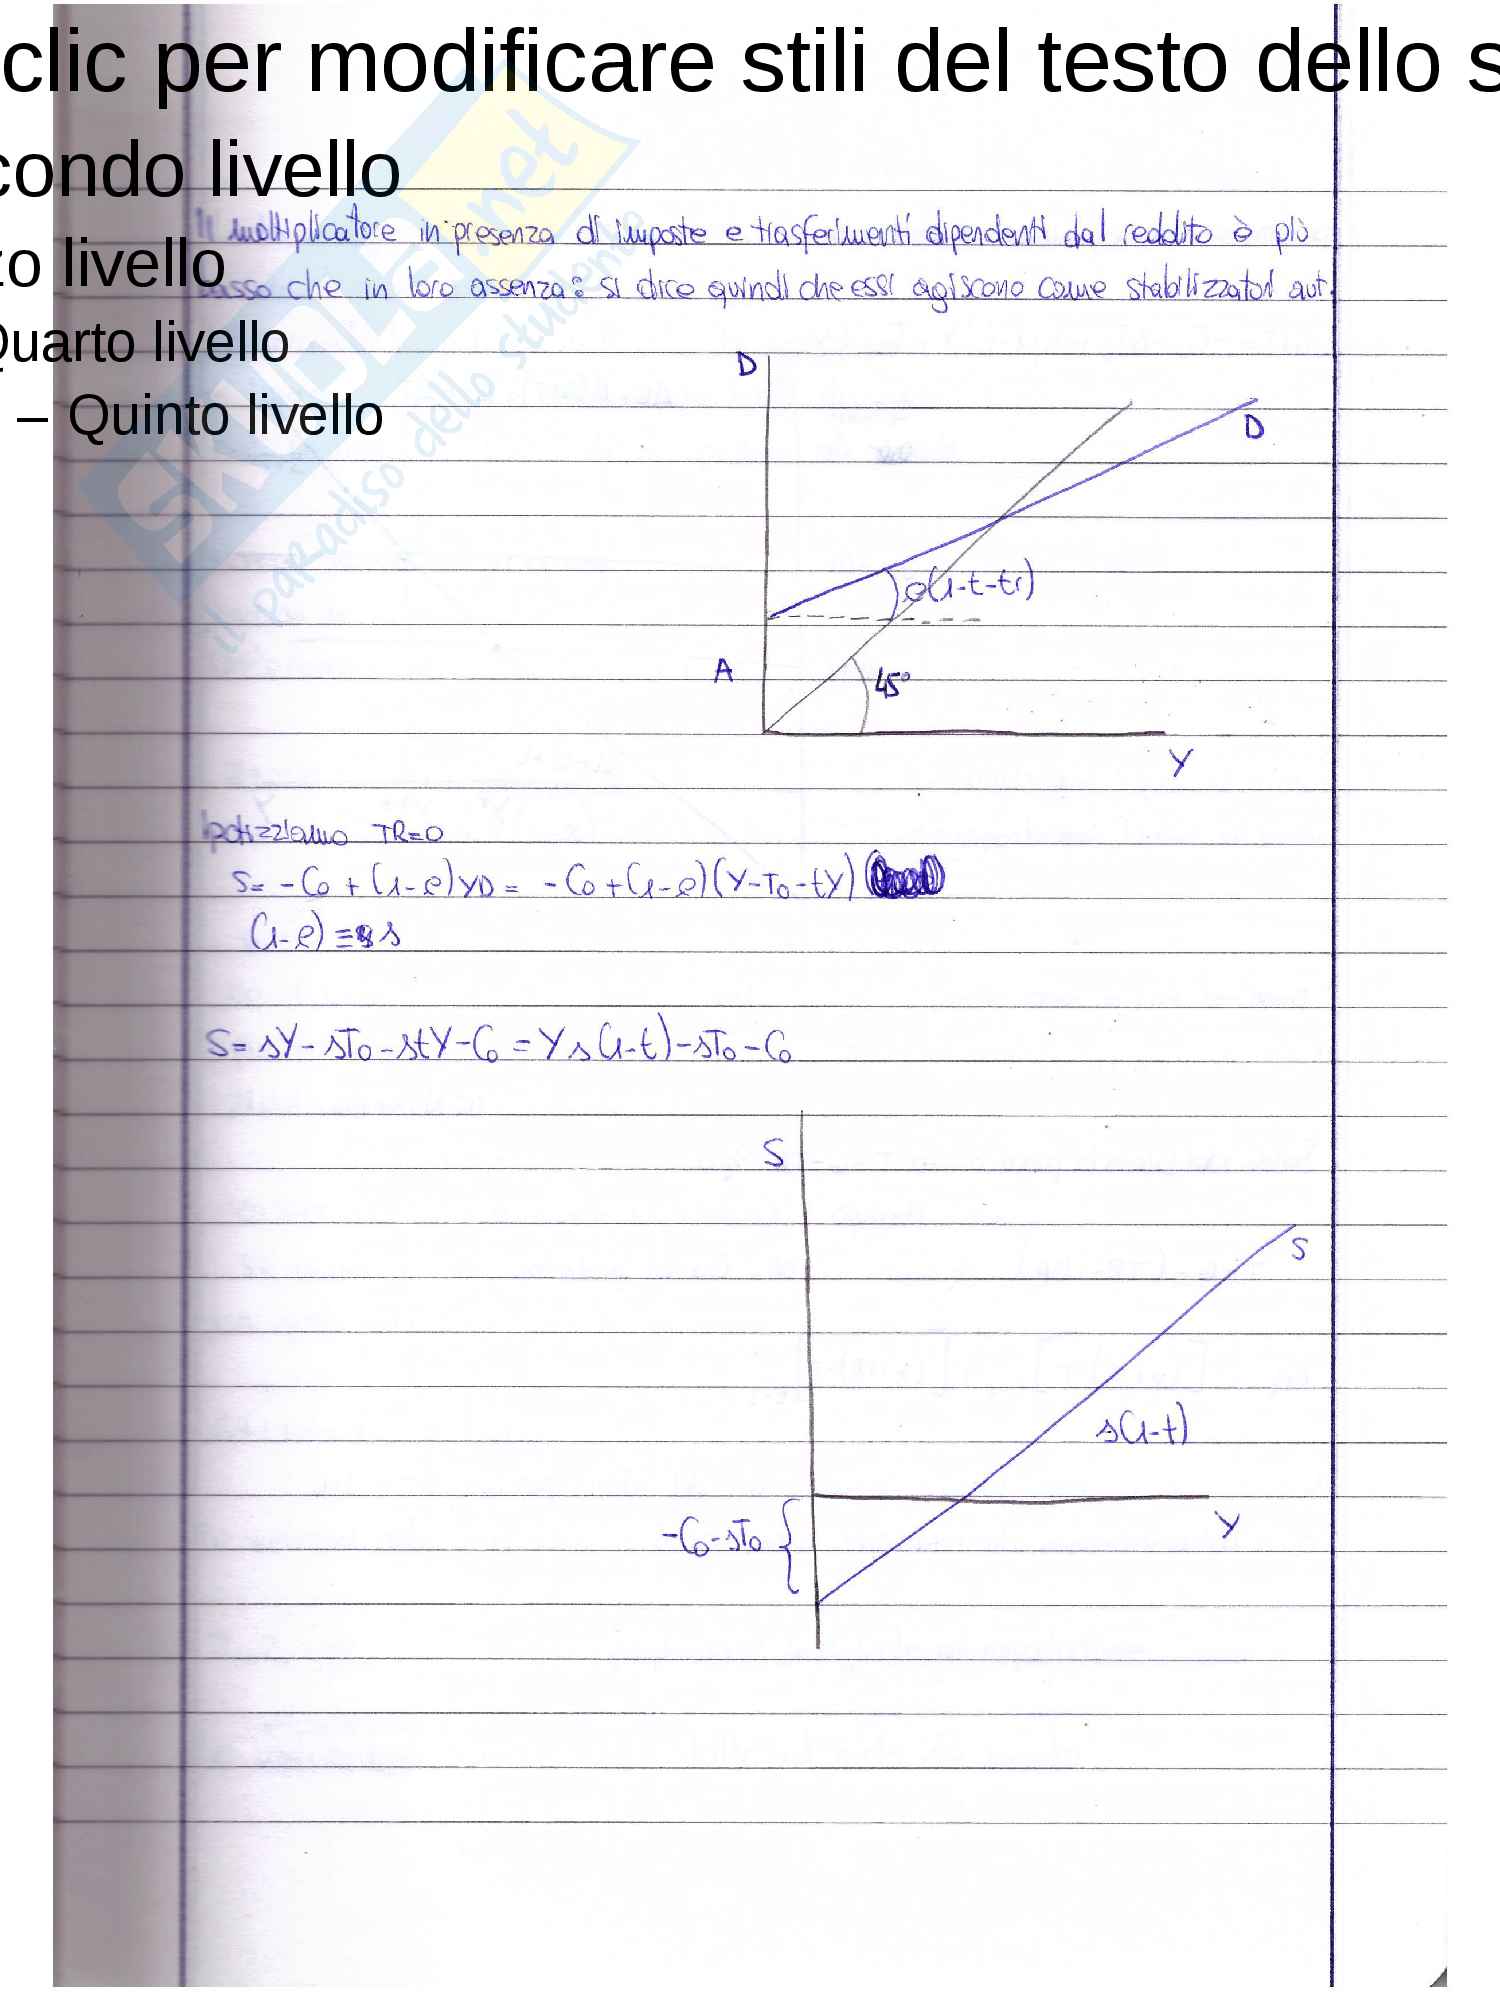 clic per modificare stili del testo dello s
condo livello
zo livello
Quarto livello
– Quinto livello
SKUOLA.net
il paradiso dello studente
Il moltiplicatore in presenza di imposte e trasferimenti dipendenti dal reddito è più
basso che in loro assenza: si dice quindi che essi agiscono come stabilizzatori aut.
D
D
c(1-t-tr)
A
45°
Y
Ipotizziamo TR=0
S= -C₀ + (1-c)YD = -C₀+(1-c)(Y-T₀-tY)
(1-c) ≡ s
S= sY-sT₀-stY-C₀ = Ys(1-t)-sT₀-C₀
S
S
s(1-t)
-C₀-sT₀
Y